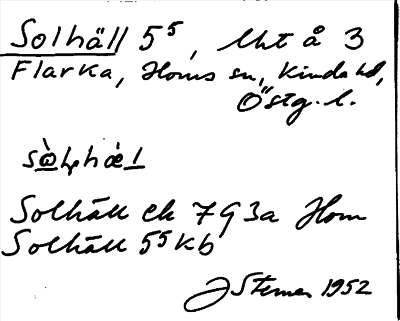 Solhäll 5⁵, Lht å 3
Flarka, Horns sn, Kinda hd,
Östg. l.
sòlhæl
Solhäll ek 7 G 3a Horn
Solhäll 5⁵ Kb
J Sterner 1952